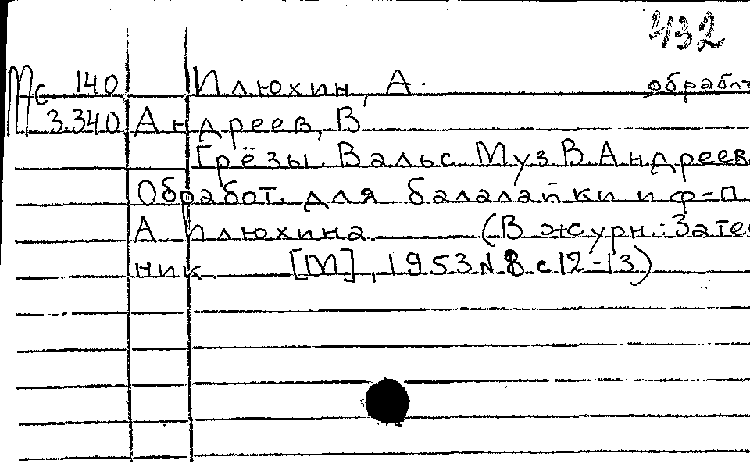 432
Мс 140 Илюхин, А. обработ
3.340 Андреев, В
Грёзы. Вальс. Муз. В. Андреев
Обработ. для балалайки и ф-п.
А. Илюхина (В журн.: Зате
ник [М], 1953 № 8 с 12-13)